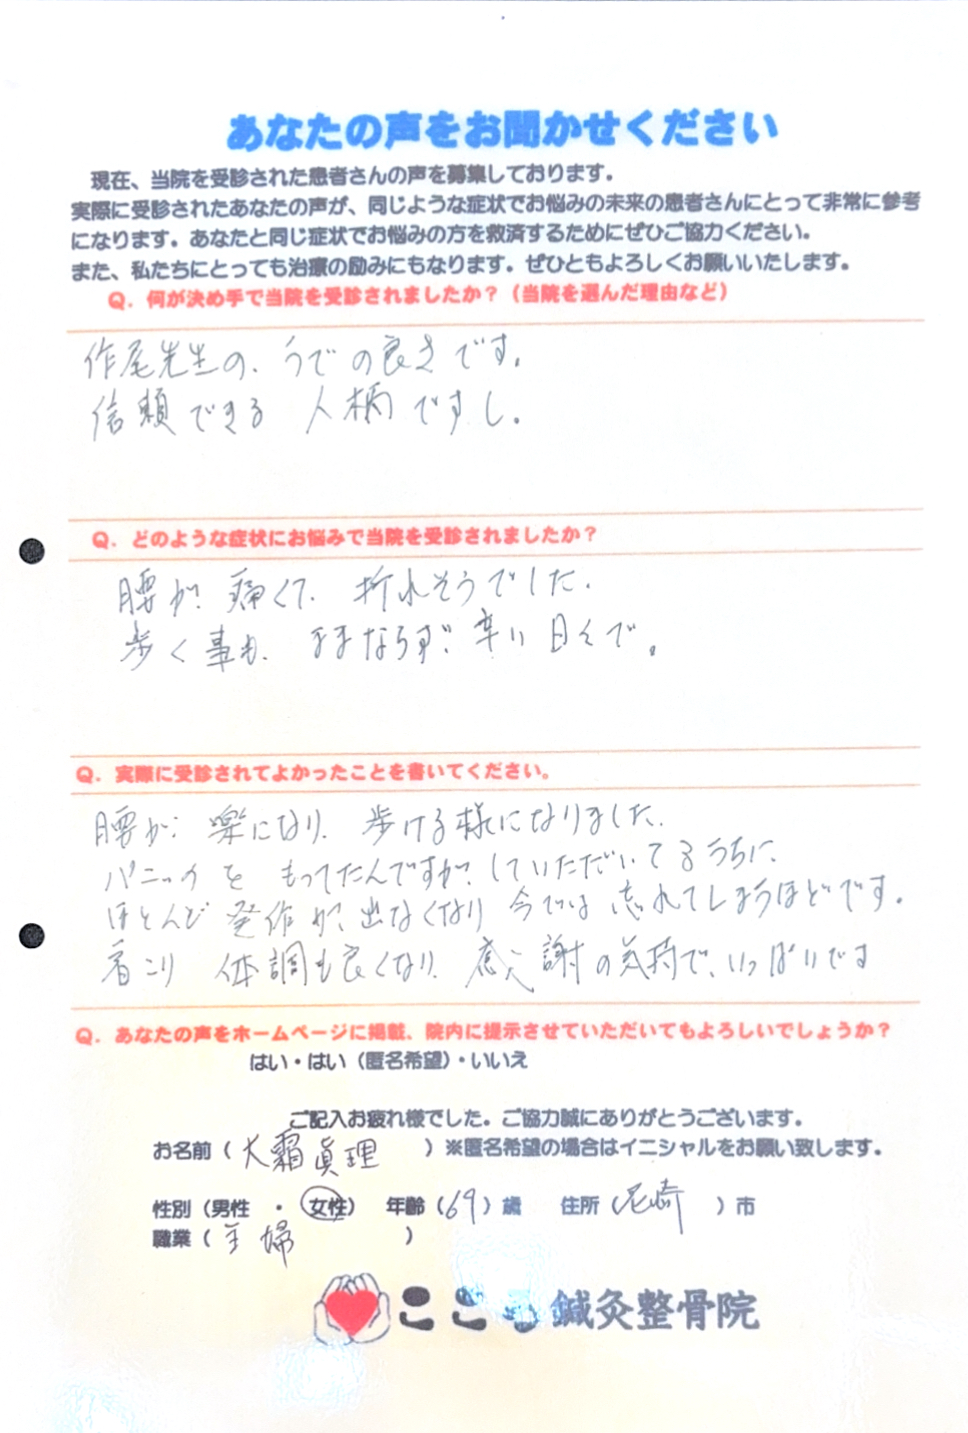 あなたの声をお聞かせください
現在、当院を受診された患者さんの声を募集しております。
実際に受診されたあなたの声が、同じような症状でお悩みの未来の患者さんにとって非常に参考
になります。あなたと同じ症状でお悩みの方を救済するためにぜひご協力ください。
また、私たちにとっても治療の励みにもなります。ぜひともよろしくお願いいたします。
Q. 何が決め手で当院を受診されましたか？（当院を選んだ理由など）
作尾先生の、うでの良さです。
信頼できる 人柄ですし。
Q. どのような症状にお悩みで当院を受診されましたか？
腰が、痛くて、折れそうでした。
歩く事も、ままならず、辛い日々で。
Q. 実際に受診されてよかったことを書いてください。
腰が、楽になり、歩ける様になりました。
パニックを もってたんですが、していただいてるうちに、
ほとんど 発作が、出なくなり 今では 忘れてしまうほどです。
肩こり 体調も良くなり、感謝の気持で、いっぱいです
Q. あなたの声をホームページに掲載、院内に提示させていただいてもよろしいでしょうか？
はい・はい（匿名希望）・いいえ
ご記入お疲れ様でした。ご協力誠にありがとうございます。
お名前（大霜眞理）※匿名希望の場合はイニシャルをお願い致します。
性別（男性 ・ 女性） 年齢（69）歳 住所（尼崎）市
職業（主婦）
ここ 鍼灸整骨院